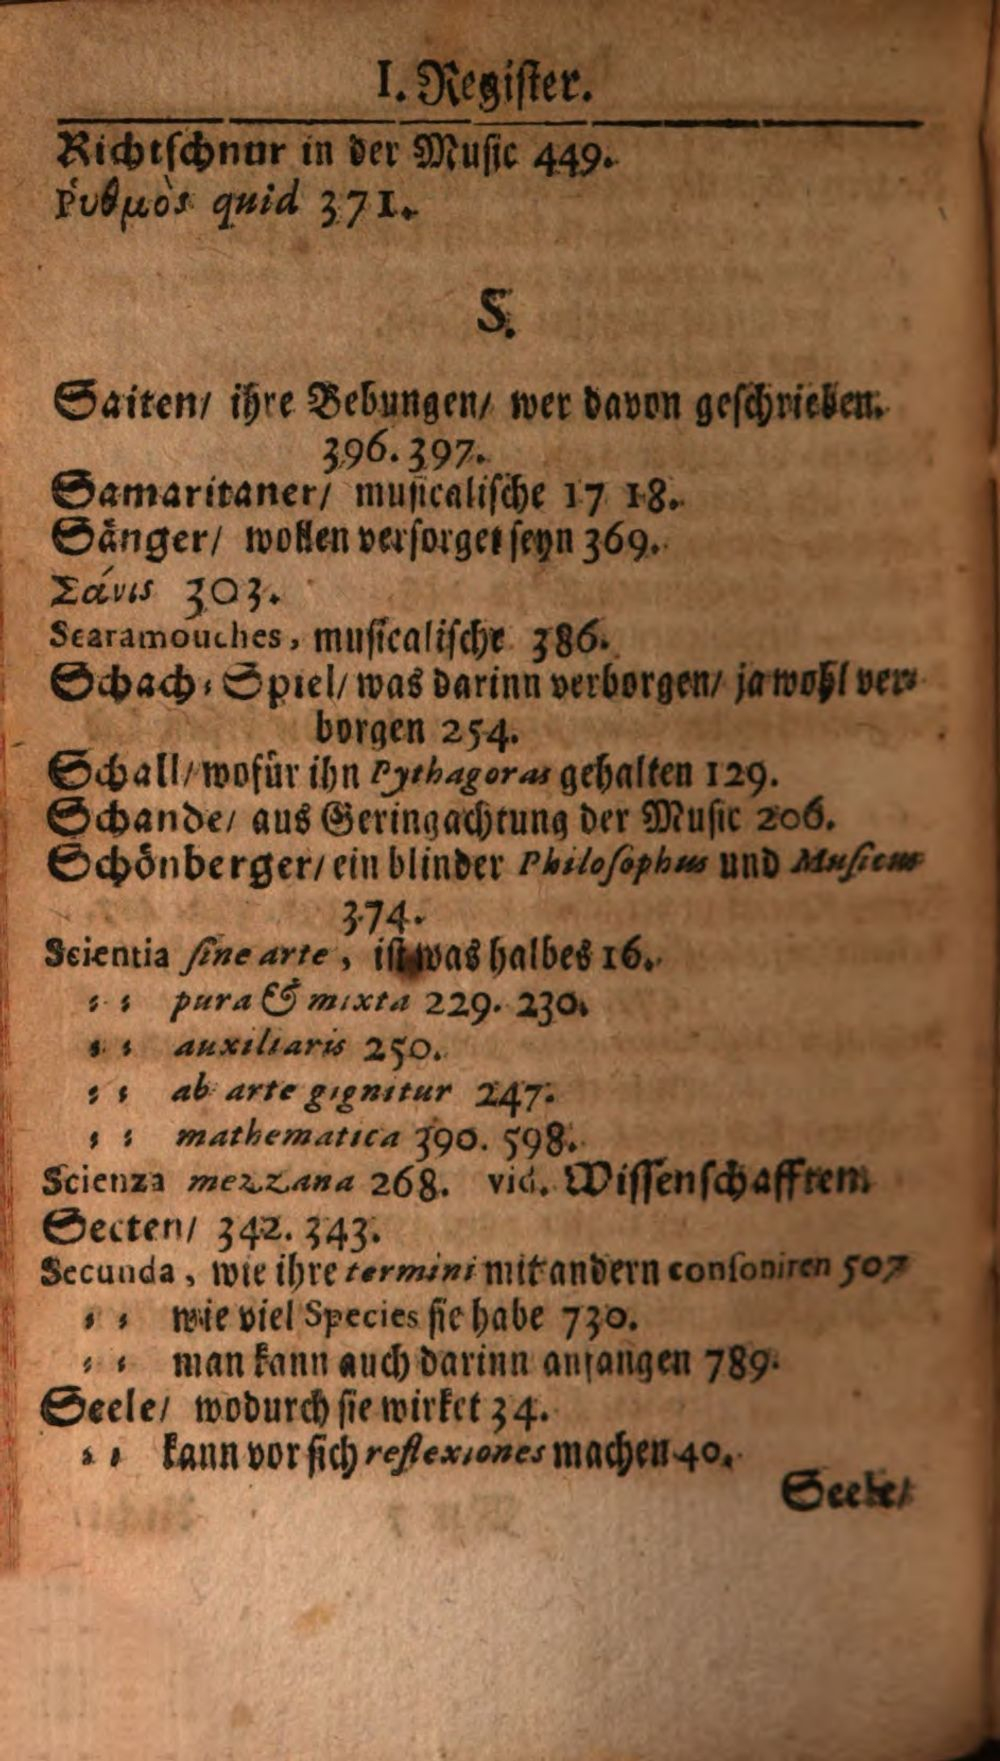 I. Register.
Richtschnur in der Music 449.
Ῥυθμὸς quid 371.
S.
Saiten/ ihre Bebungen/ wer davon geschrieben.
396. 397.
Samaritaner/ musicalische 17 18.
Sänger/ wollen versorget seyn 369.
Σάνις 303.
Scaramouches, musicalische 386.
Schach-Spiel/ was darinn verborgen/ ja wohl ver-
borgen 254.
Schall/ wofür ihn Pythagoras gehalten 129.
Schande/ aus Geringachtung der Music 206.
Schönberger/ ein blinder Philosophus und Musicus
374.
Scientia sine arte, ist was halbes 16.
- - pura & mixta 229. 230.
- - auxiliaris 250.
- - ab arte gignitur 247.
- - mathematica 390. 598.
Scienza mezzana 268. vid. Wissenschafften.
Secten/ 342. 343.
Secunda, wie ihre termini mit andern consoniren 507
- - wie viel Species sie habe 730.
- - man kann auch darinn anfangen 789.
Seele/ wodurch sie wirket 34.
- - kann vor sich reflexiones machen 40.
Seele/